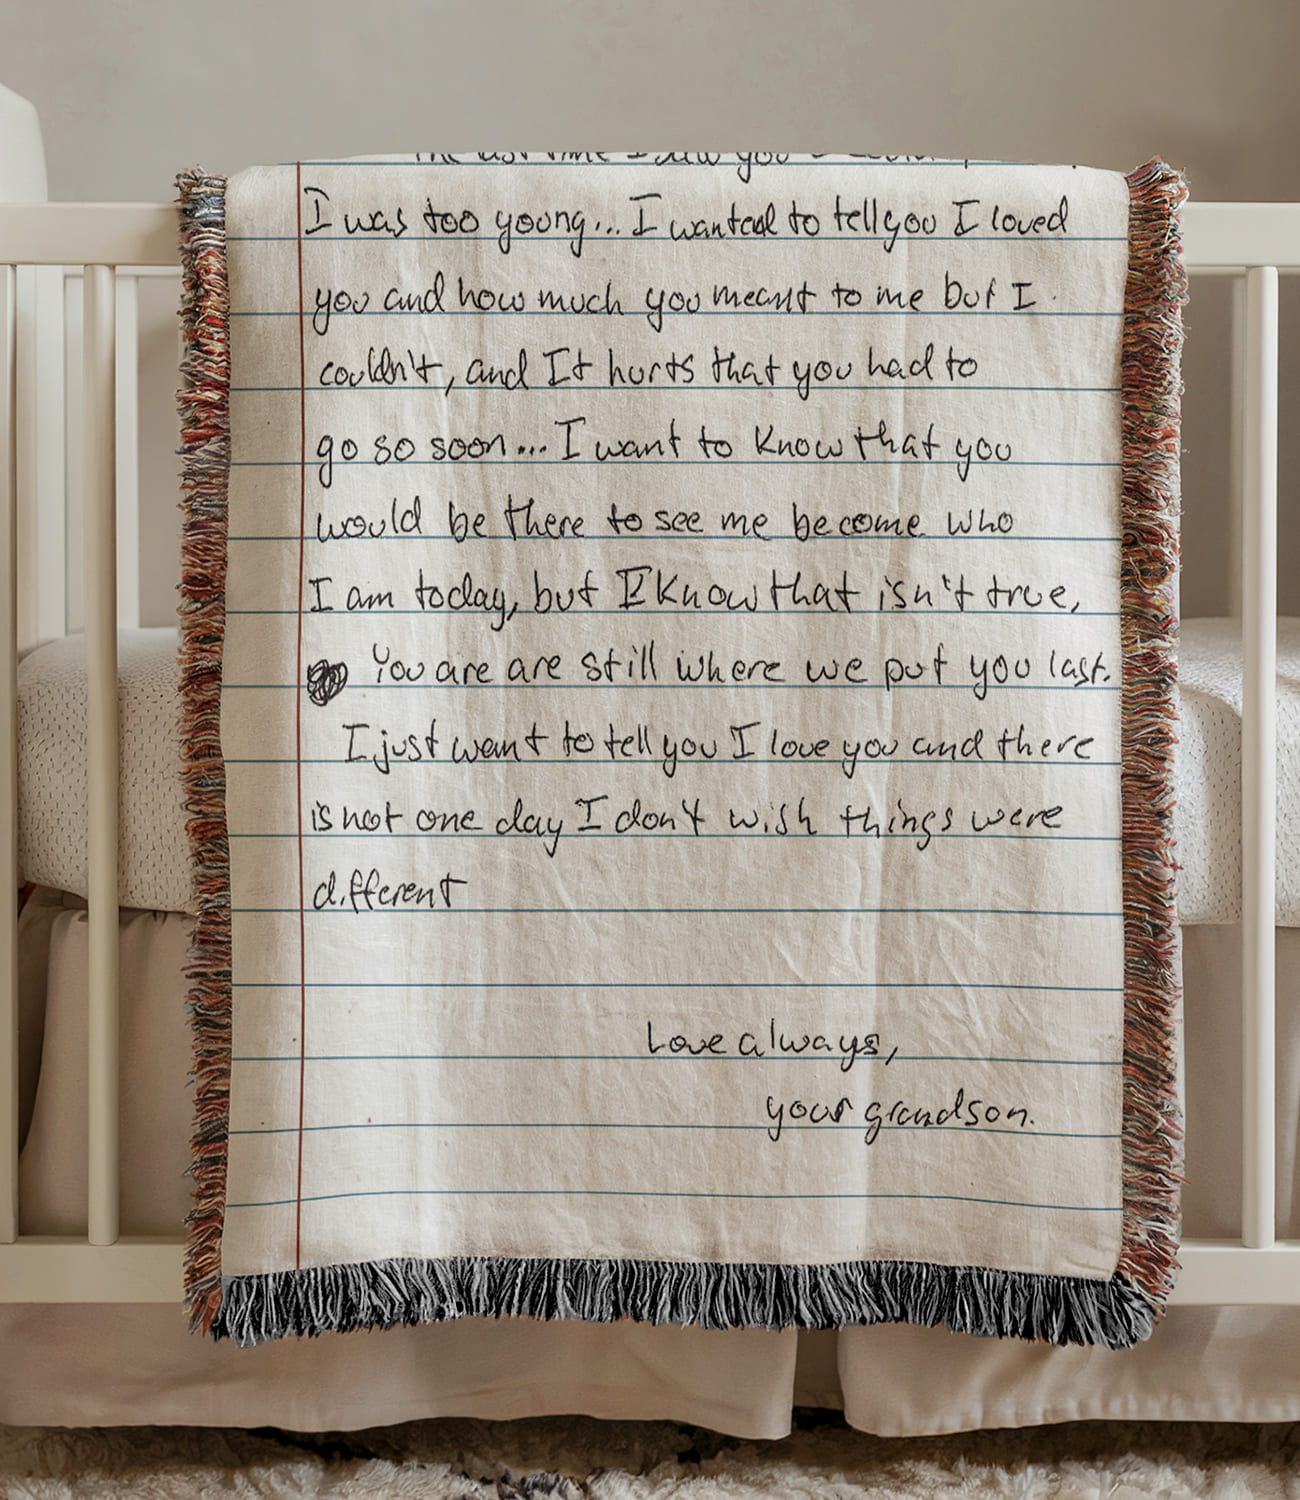 The last time I saw you I
I was too young... I wanted to tell you I loved
you and how much you meant to me but I
couldn't, and It hurts that you had to
go so soon... I want to know that you
would be there to see me become who
I am today, but I know that isn't true,
You are are still where we put you last.
I just want to tell you I love you and there
is not one day I don't wish things were
different
Love always,
your grandson.